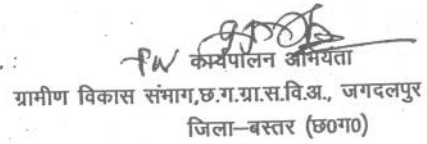 कार्यपालन अभियंता
ग्रामीण विकास संभाग,छ.ग.ग्रा.स.वि.अ., जगदलपुर
जिला–बस्तर (छ0ग0)